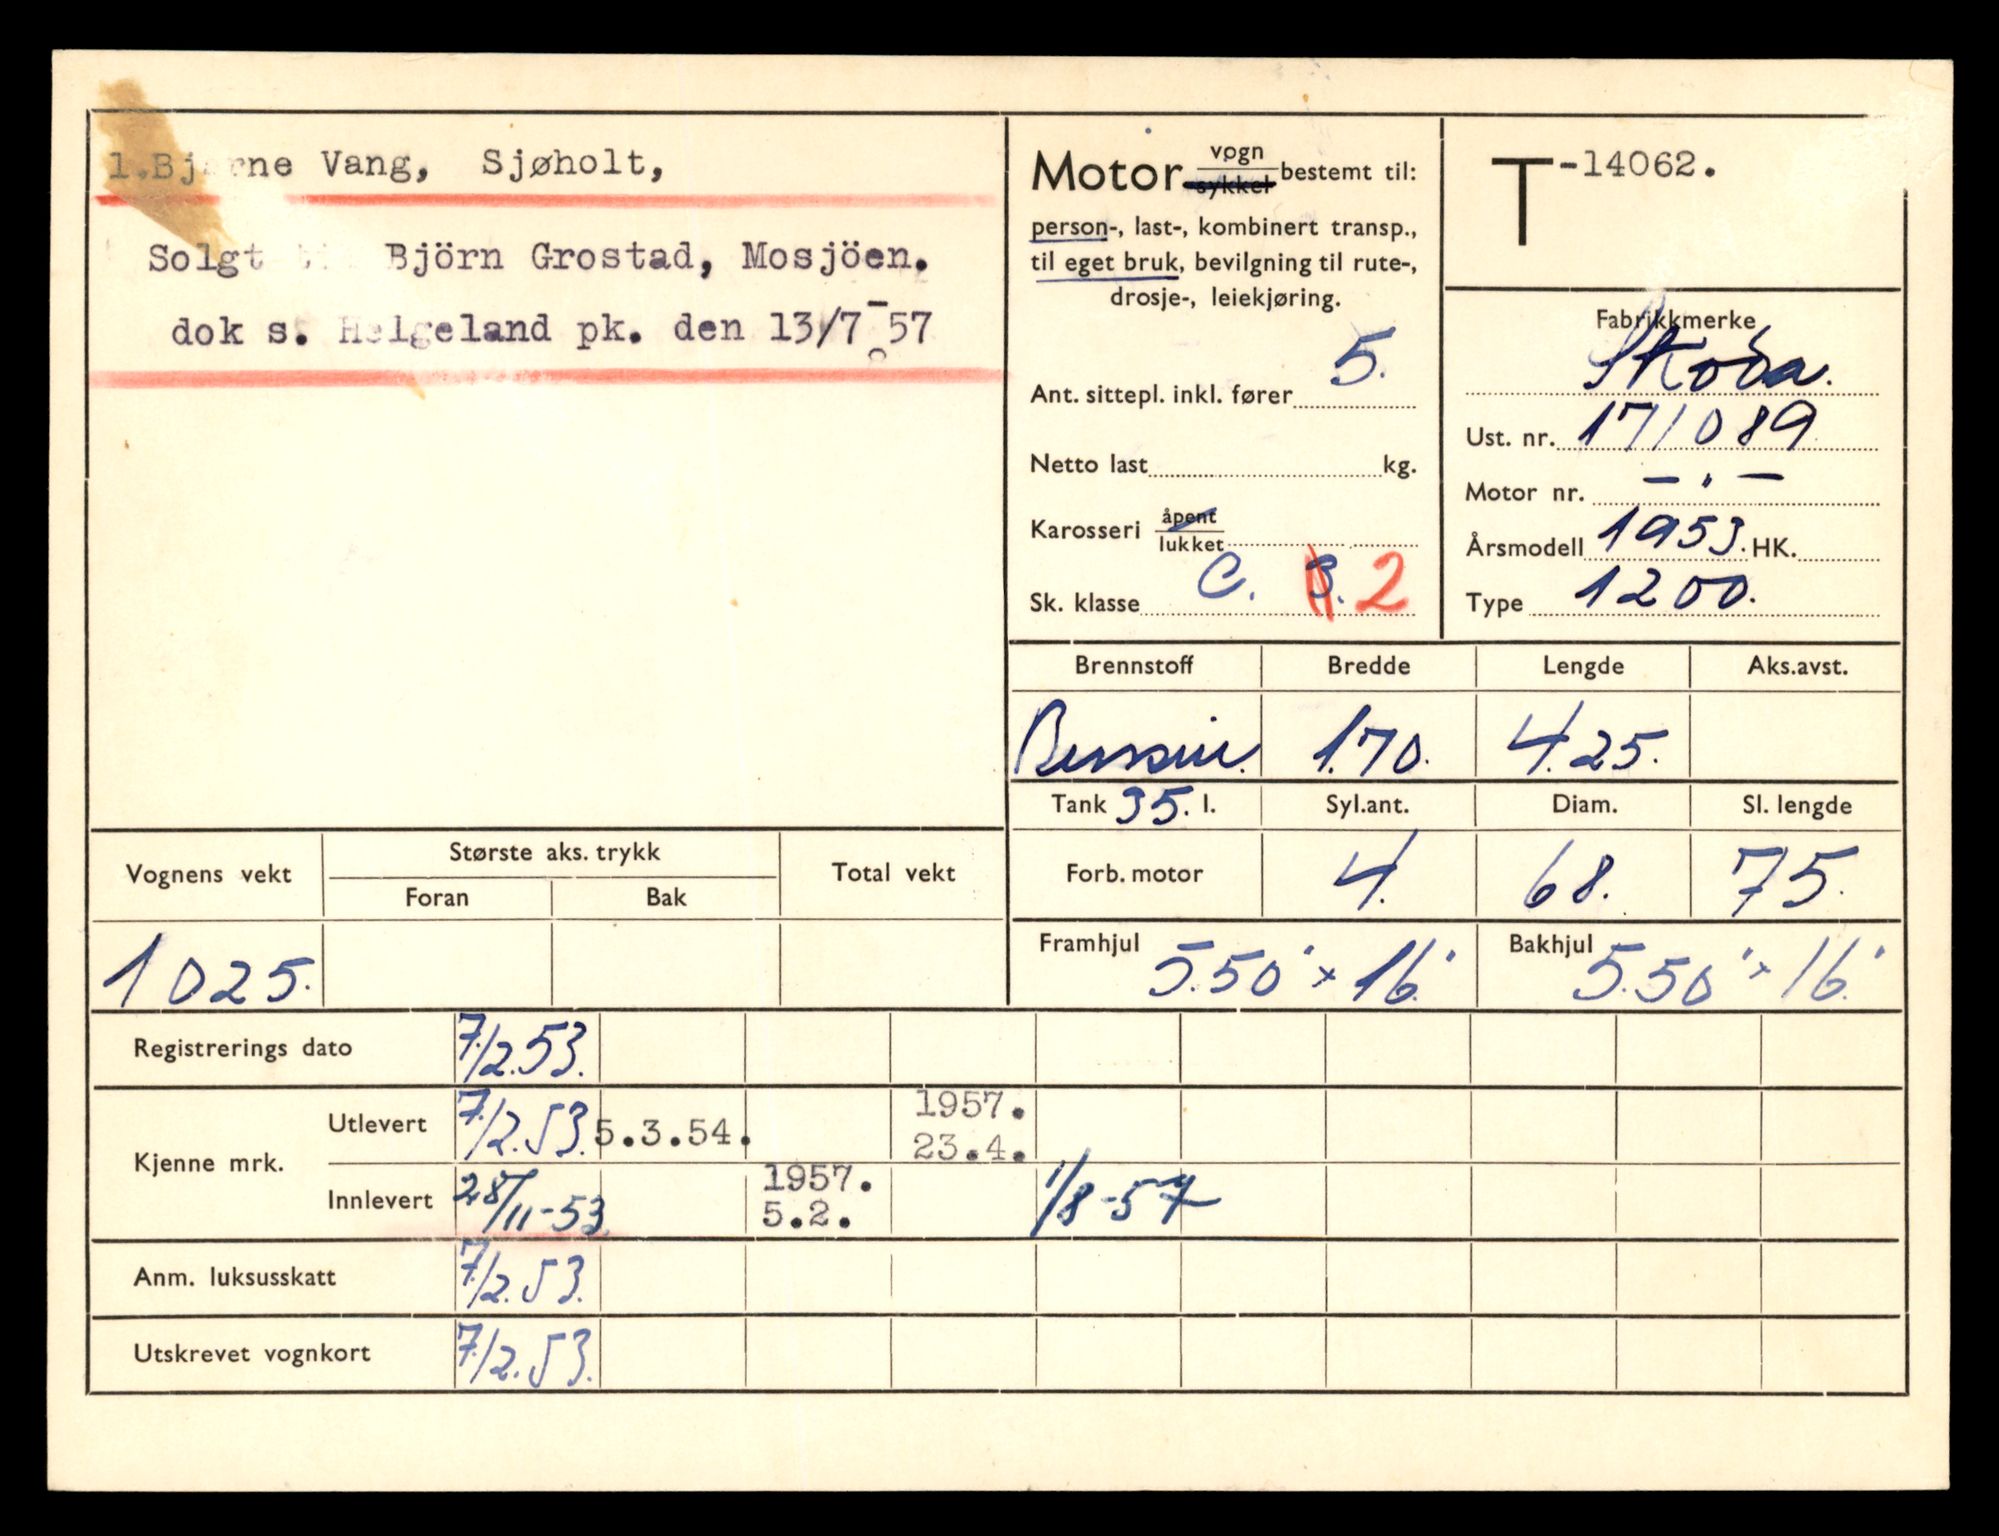 1.Bjarne Vang, Sjøholt,
Solgt til Björn Grostad, Mosjöen.
dok s. Helgeland pk. den 13/7-57
Motor vogn/sykkel bestemt til:
person-, last-, kombinert transp.,
til eget bruk, bevilgning til rute-,
drosje-, leiekjøring.
Ant. sittepl. inkl. fører 5.
Netto last kg.
Karosseri åpent/lukket
Sk. klasse C. 3. 2
T-14062.
Fabrikkmerke
Skoda.
Ust. nr. 171089
Motor nr. — " —
Årsmodell 1953. HK.
Type 1200.
Brennstoff Bredde Lengde Aks.avst.
Bensin. 1.70. 4.25.
Tank 35. l. Syl.ant. Diam. Sl. lengde
Forb. motor 4. 68. 75.
Framhjul 5.50" x 16" Bakhjul 5.50" x 16"
Vognens vekt Største aks. trykk Total vekt
Foran Bak
1025.
Registrerings dato 7/2.53.
Kjenne mrk. Utlevert 7/2.53. 5.3.54. 1957. 23.4.
Innlevert 28/11-53 1957. 5.2. 1/8-57
Anm. luksusskatt 7/2.53.
Utskrevet vognkort 7/2.53.